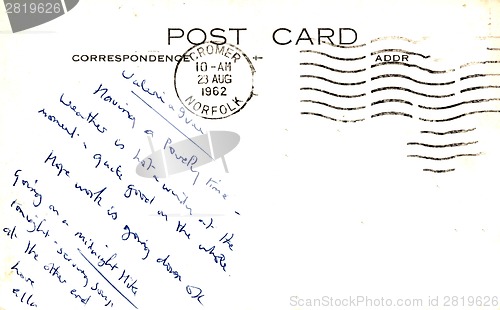 2819626
POST CARD
CORRESPONDENCE
ADDR
CROMER
10-AM
23 AUG
1962
NORFOLK
Having a lovely time -
weather is hot & at the
moment & quite good on the whole.
Hope work is going down OK
Going on a midnight hike
tonight - sausages
at the other end
have
© Stockfresh
id 2819626